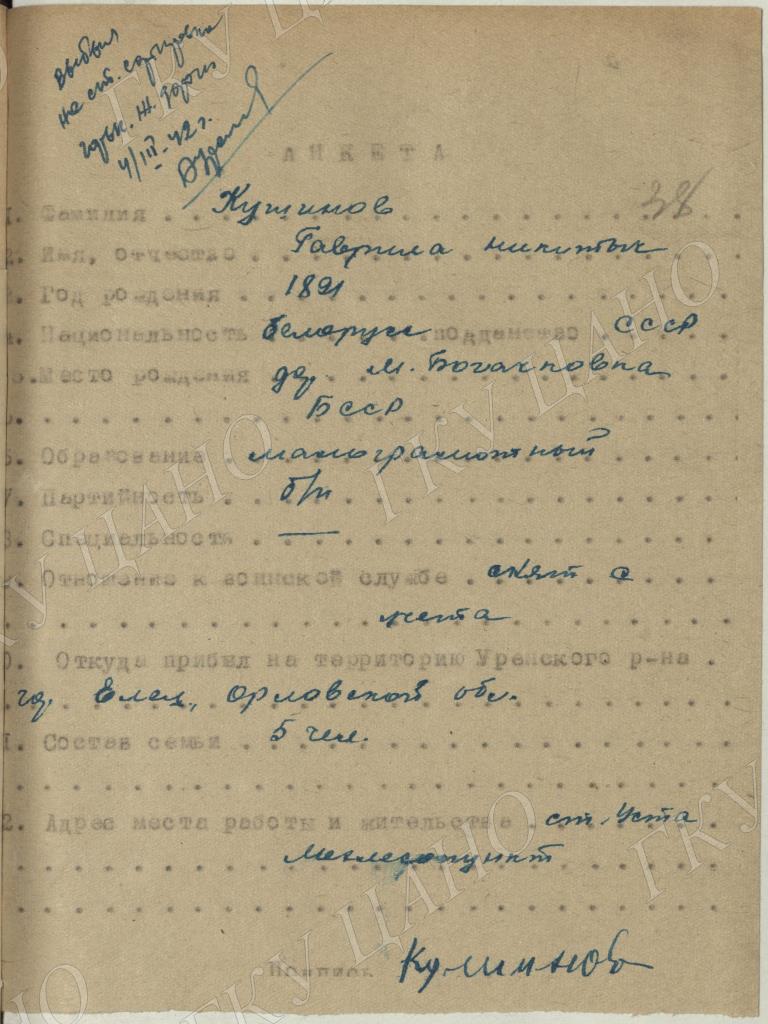 выбыл
на ст. сортировка
Горьк. ж. дороги
4/III-42 г.
АНКЕТА
38
1. Фамилия . . . Кушинов
2. Имя, отчество . Гаврила Никитыч
3. Год рождения . . 1891
4. Национальность белорусс подданство СССР
5. Место рождения дер. М. Богачковка
БССР
6. Образование . малограмотный
7. Партийность . б/п
8. Специальность . —
9. Отношение к воинской службе . снят с
учета
10. Откуда прибыл на территорию Уренского р-на .
гор. Елец, Орловской обл.
11. Состав семьи . 5 чел.
12. Адрес места работы и жительства . ст. Уста
Мехлесопункт
Подпись Кушинов